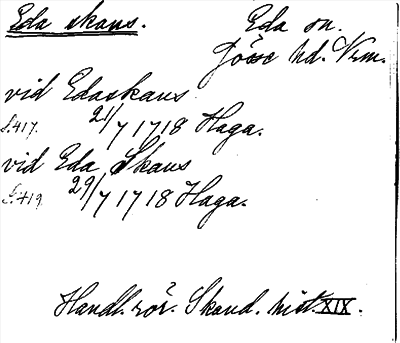 Eda skans. Eda sn.
Jösse hd. Vrm.
vid Edaskans
s. 417. 21/7 1718 Haga.
vid Eda Skans
s. 419. 29/7 1718 Haga.
Handl. rör. Skand. hist. XIX.